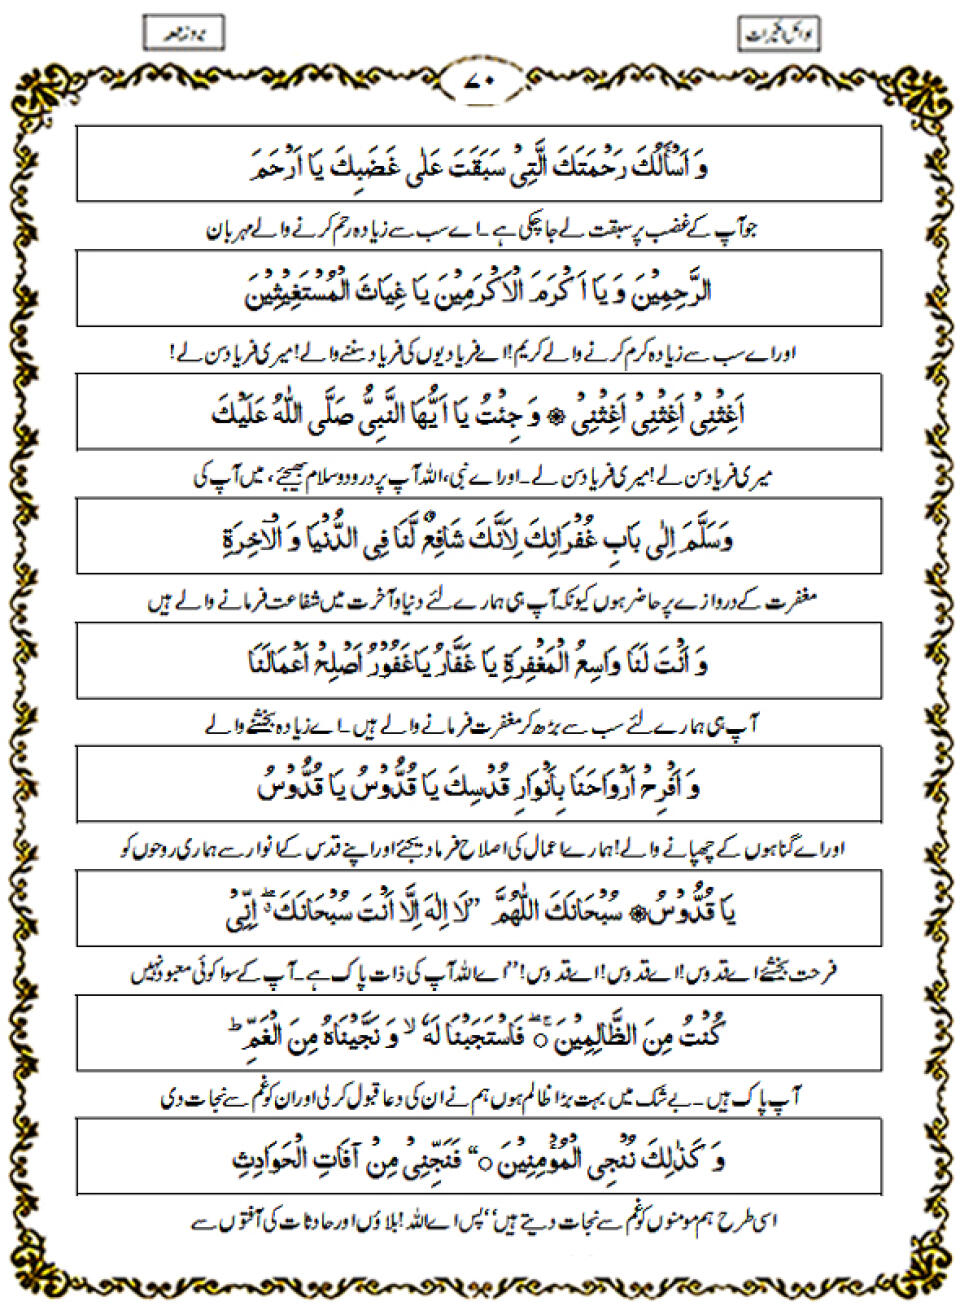 لوائل الخیرات
۷۰
وَ اَسْأَلُكَ رَحْمَتَكَ الَّتِيْ سَبَقَتَ عَلٰى غَضَبِكَ يَا اَرْحَمَ
جو آپ کے غضب پر سبقت لے جا چکی ہے۔ اے سب سے زیادہ رحم کرنے والے مہربان
الرَّحِمِيْنَ وَ يَا اَكْرَمَ الْاَكْرَمِيْنَ يَا غِيَاثَ الْمُسْتَغِيْثِيْنَ
اور اے سب سے زیادہ کرم کرنے والے کریم! اے فریادیوں کی فریاد سننے والے! میری فریاد سن لے!
اَغِثْنِيْ اَغِثْنِيْ اَغِثْنِيْ ۞ وَ جِئْتُ يَا اَيُّهَا النَّبِيُّ صَلَّى اللّٰهُ عَلَيْكَ
میری فریاد سن لے! میری فریاد سن لے۔ اور اے نبی، اللہ آپ پر درود و سلام بھیجئے، میں آپ کی
وَسَلَّمَ اِلٰى بَابِ غُفْرَانِكَ لِاَنَّكَ شَافِعٌ لَّنَا فِي الدُّنْيَا وَ الْاٰخِرَةِ
مغفرت کے دروازے پر حاضر ہوں کیونکہ آپ ہی ہمارے لئے دنیا و آخرت میں شفاعت فرمانے والے ہیں
وَ اَنْتَ لَنَا وَاسِعُ الْمَغْفِرَةِ يَا غَفَّارُ يَاغَفُوْرُ اَصْلِحْ اَعْمَالَنَا
آپ ہی ہمارے لئے سب سے بڑھ کر مغفرت فرمانے والے ہیں۔ اے زیادہ بخشنے والے
وَ اَفْرِحْ اَرْوَاحَنَا بِاَنْوَارِ قُدْسِكَ يَا قُدُّوْسُ يَا قُدُّوْسُ
اور اے گناہوں کے چھپانے والے! ہمارے اعمال کی اصلاح فرما دیجئے اور اپنے قدس کے انوار سے ہماری روحوں کو
يَا قُدُّوْسُ۞ سُبْحَانَكَ اللّٰهُمَّ ”لَا اِلٰهَ اِلَّا اَنْتَ سُبْحَانَكَ ۖ اِنِّيْ
فرحت بخشئے اے قدوس! اے قدوس! اے قدوس! ”اے اللہ آپ کی ذات پاک ہے۔ آپ کے سوا کوئی معبود نہیں
كُنْتُ مِنَ الظَّالِمِيْنَ ۚۖ فَاسْتَجَبْنَا لَهٗ ۙ وَ نَجَّيْنَاهُ مِنَ الْغَمِّ ؕ
آپ پاک ہیں۔ بے شک میں بہت بڑا ظالم ہوں ہم نے ان کی دعا قبول کر لی اور ان کو غم سے نجات دی
وَ كَذٰلِكَ نُنْجِي الْمُؤْمِنِيْنَ ○“ فَنَجِّنِيْ مِنْ آفَاتِ الْحَوَادِثِ
اسی طرح ہم مومنوں کو غم سے نجات دیتے ہیں“ پس اے اللہ! بلاؤں اور حادثات کی آفتوں سے